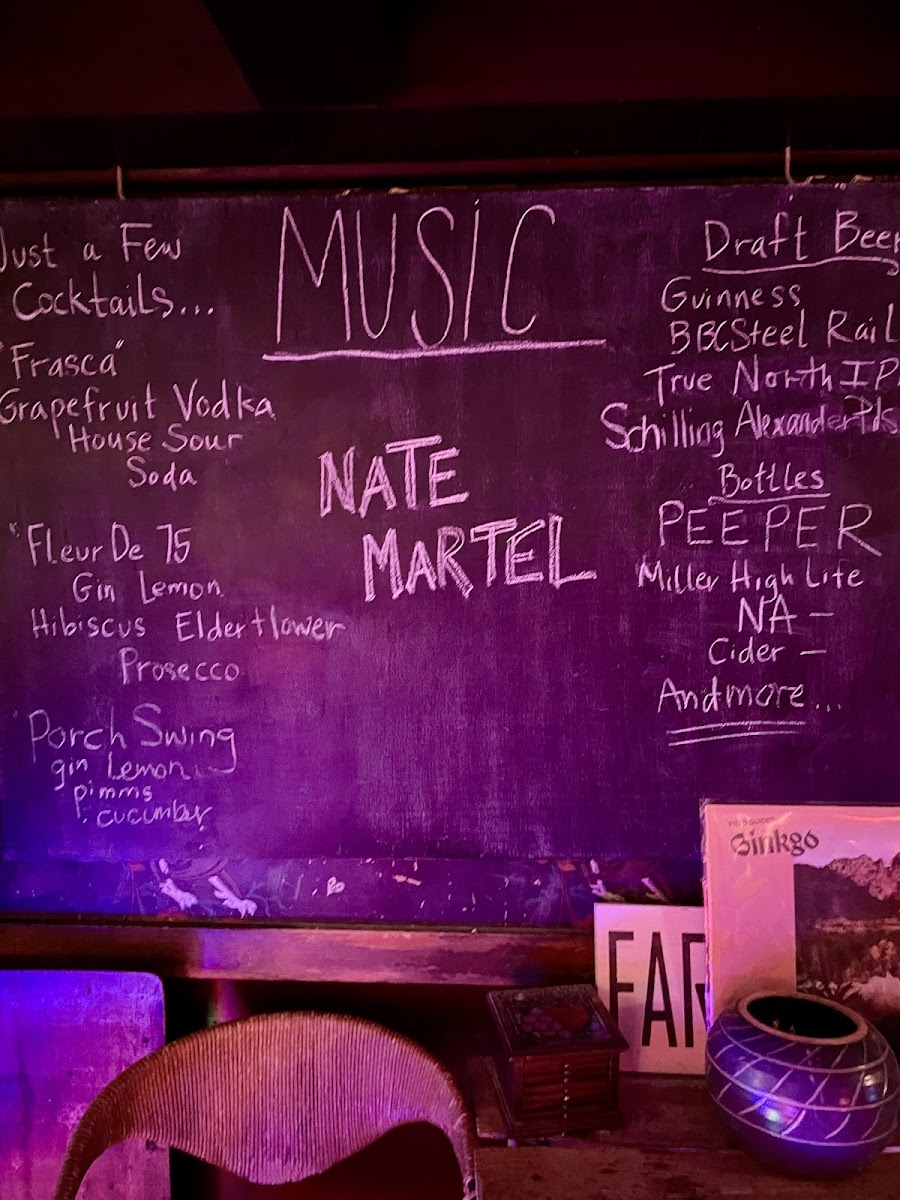 Just a Few
Cocktails...
"Frasca"
Grapefruit Vodka
House Sour
Soda
"Fleur De 75
Gin Lemon
Hibiscus Elderflower
Prosecco
Porch Swing
gin Lemon
pimms
cucumber
MUSIC
NATE
MARTEL
Draft Beer
Guinness
BBC Steel Rail
True North IP
Schilling Alexander Pils
Bottles
PEEPER
Miller High Life
NA —
Cider —
And more...
Ginkgo
FAR